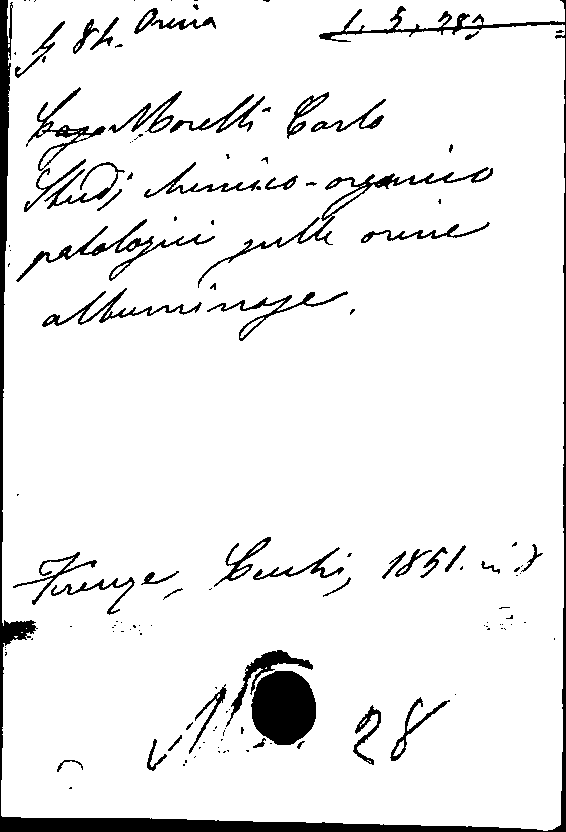 G. 84. Orina 1. 5. 283
Morelli Carlo
Studj chimico-organico
patologici sulle orine
albuminose.
Firenze, Cecchi, 1851. in 8
M. 28